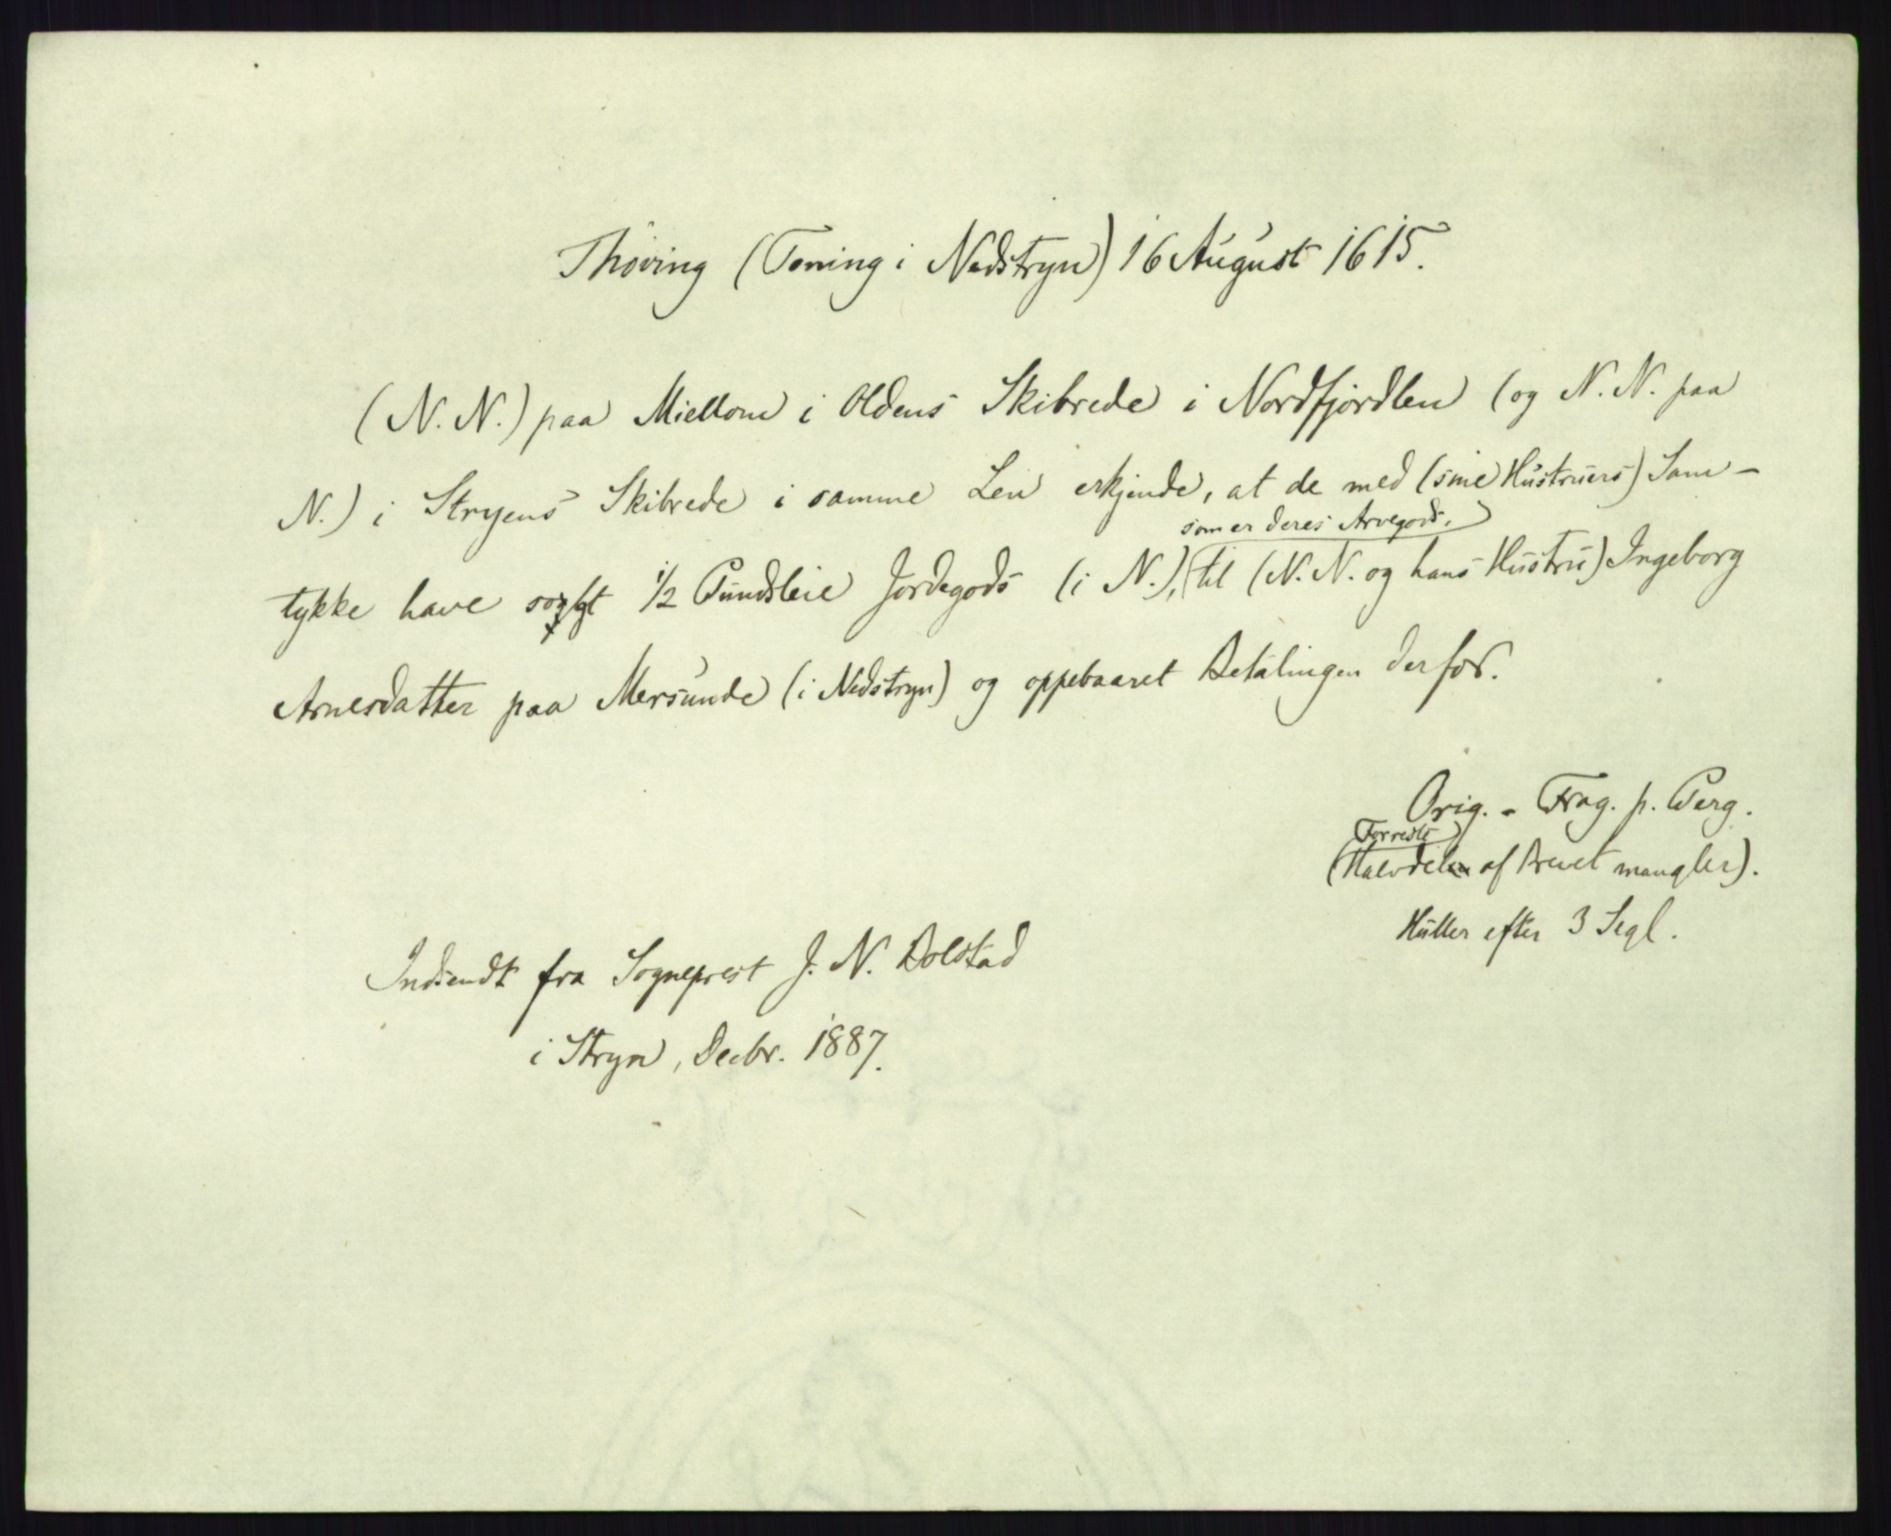 Thøving (Tøning i Nedstryn) 16 August 1615.
(N. N.) paa Miellom i Oldens Skibrede i Nordfjordlen (og N. N. paa
N.) i Stryens Skibrede i samme Len erkjende, at de med (sine Hustruers) Sam-
som er deres Arvegods,
tykke have solgt 1/2 Pundsleie Jordegods (i N.), til (N. N. og hans Hustru) Ingeborg
Arnesdatter paa Mersunde (i Nedstryn) og oppebaaret Betalingen derfor.
Orig. - Frag. p. Perg.
Forreste
(Halvdel af Brevet mangler).
Huller efter 3 Segl.
Indsendt fra Sogneprest J. N. Dolstad
i Stryn, Decbr. 1887.